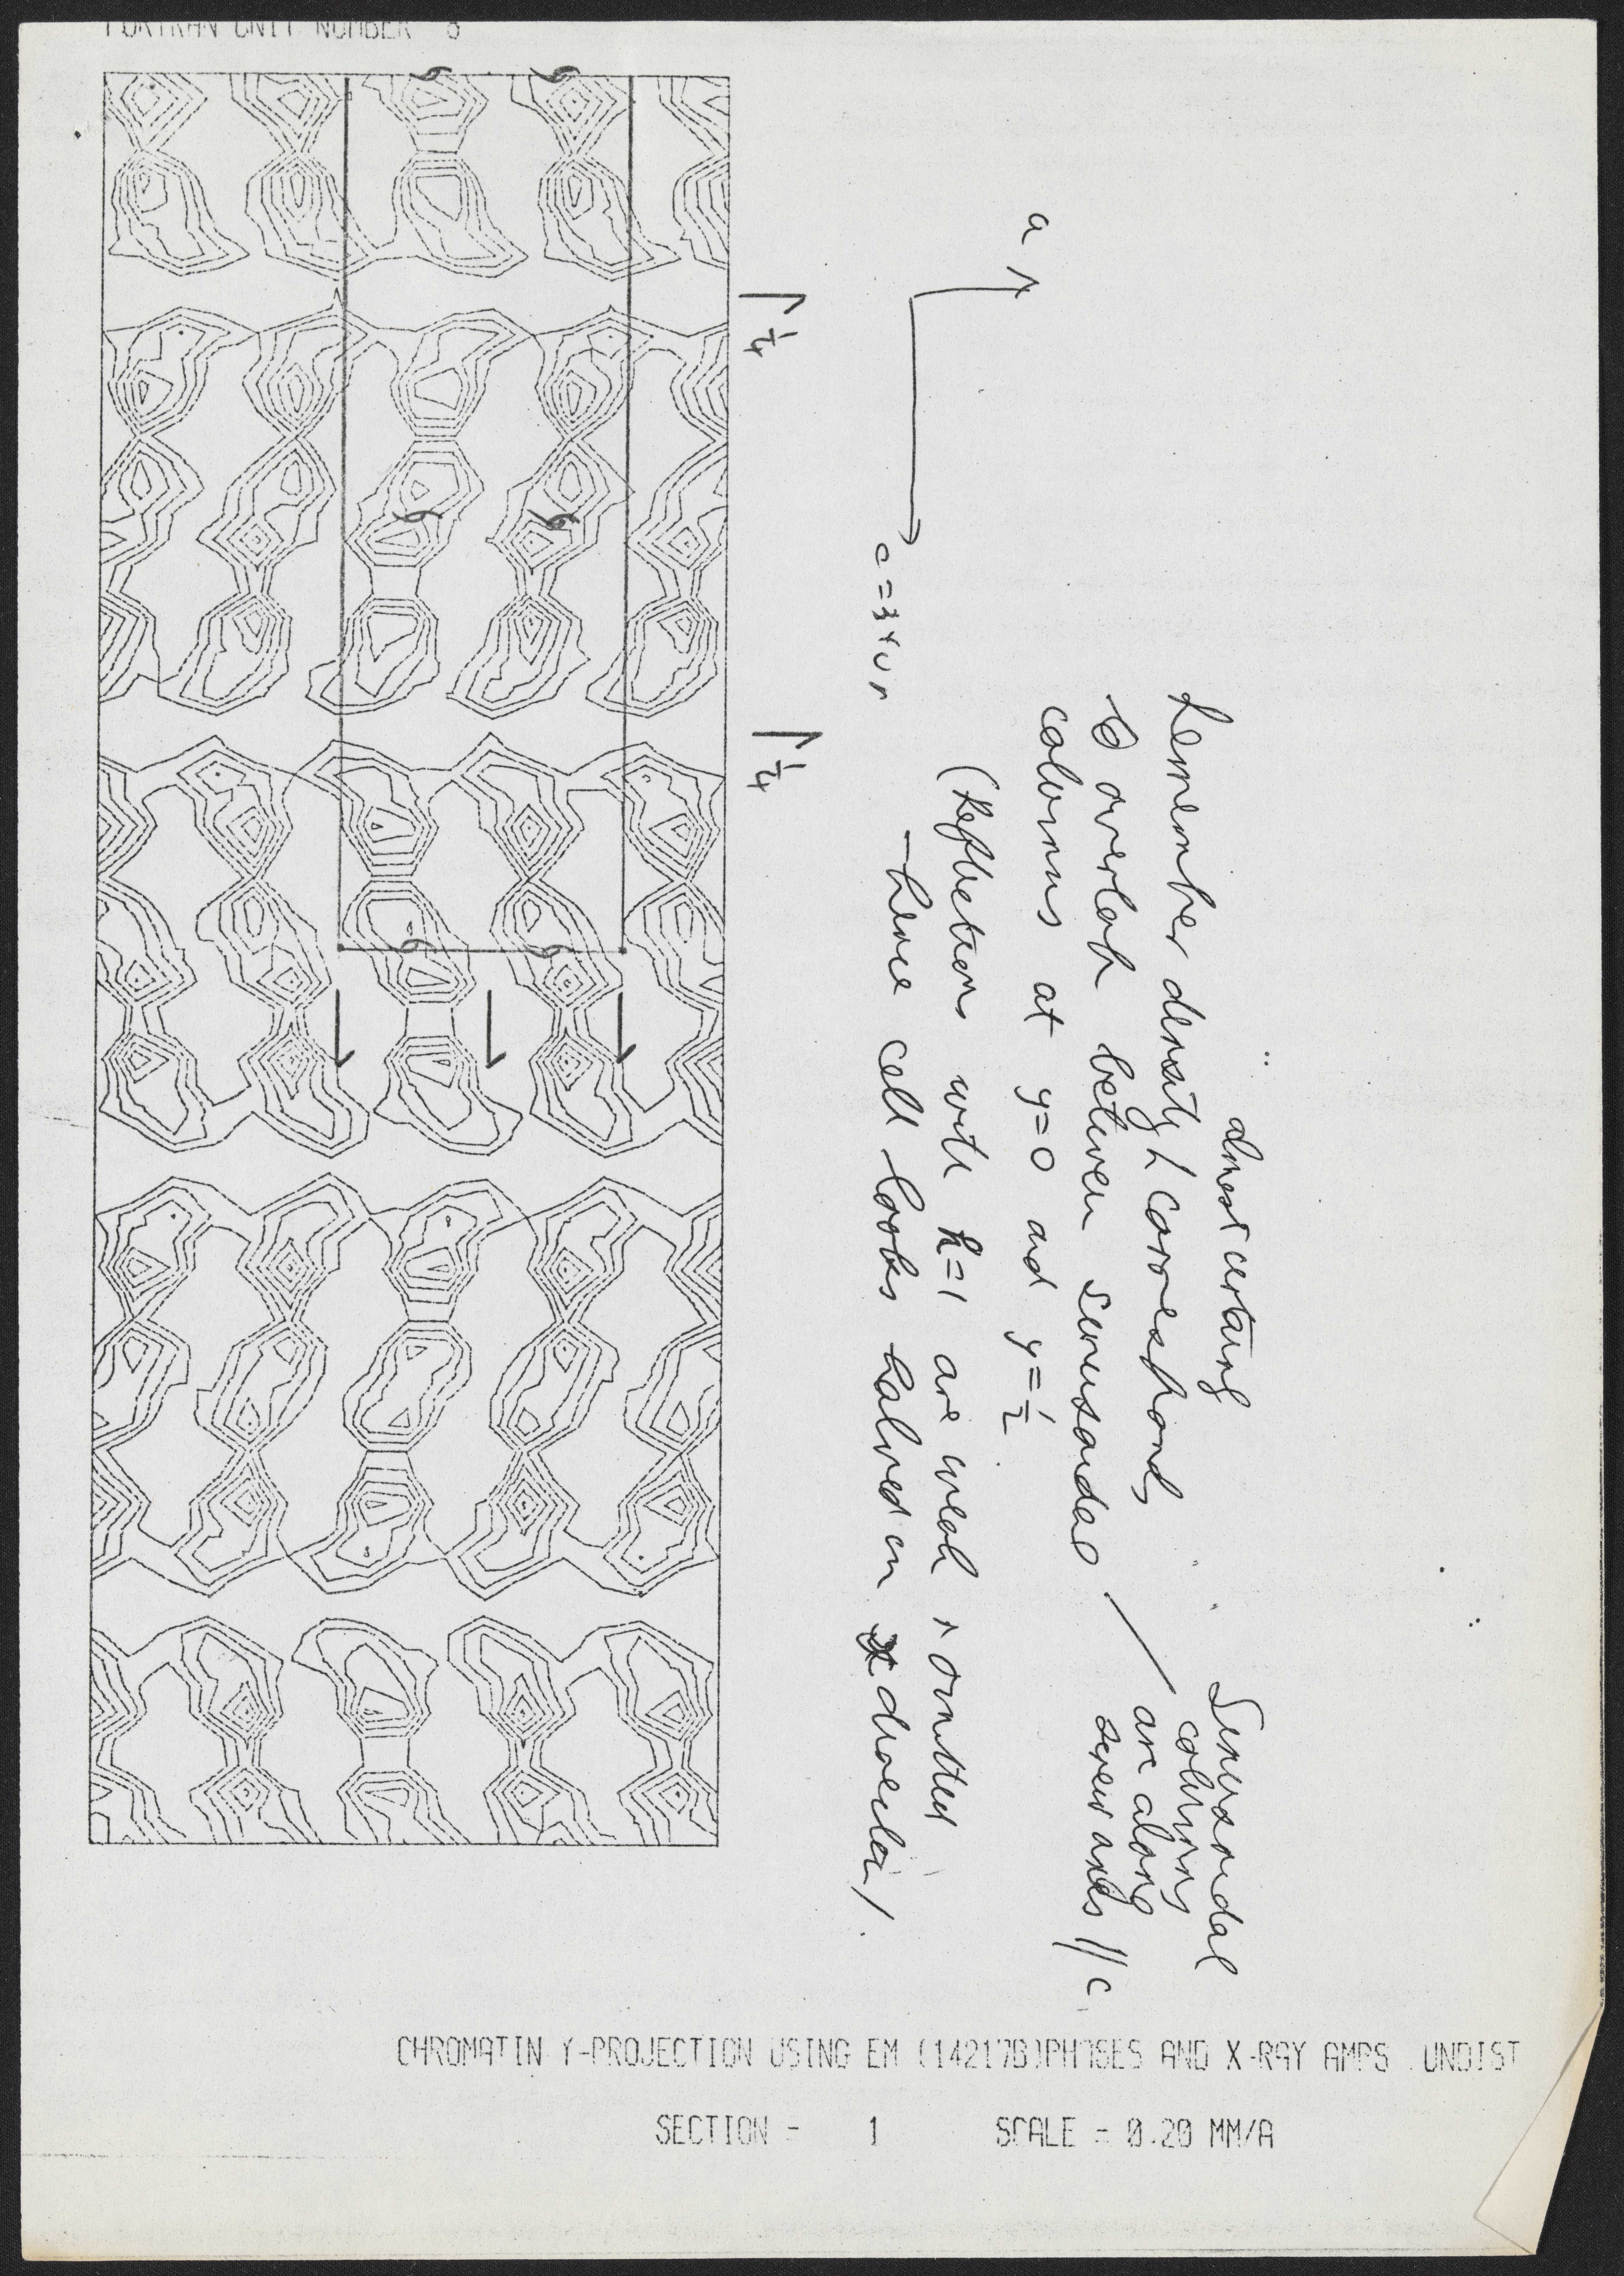 FORTRAN UNIT NUMBER 8
1/4
1/4
a
c = 340 Å
almost certainly
Remember density ⁁ corresponds
to overlap between sinusoidal
columns at y=0 and y=1/2
(Reflections with h=1 are weak & omitted
- hence cell looks halved in x direction).
Sinusoidal
columns
are along
screw axes //c
CHROMATIN Y-PROJECTION USING EM (142178)PHASES AND X-RAY AMPS UNDIST
SECTION - 1 SCALE = 0.20 MM/A